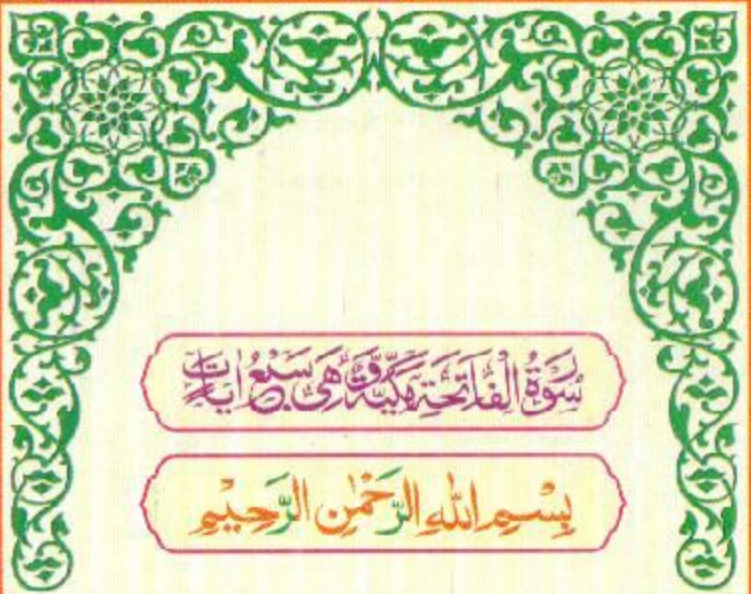 سُوْرَةُ الْفَاتِحَةِ مَكِّيَّةٌ وَّهِيَ سَبْعُ اٰيَاتٍ
بِسْمِ اللّٰهِ الرَّحْمٰنِ الرَّحِيْمِ